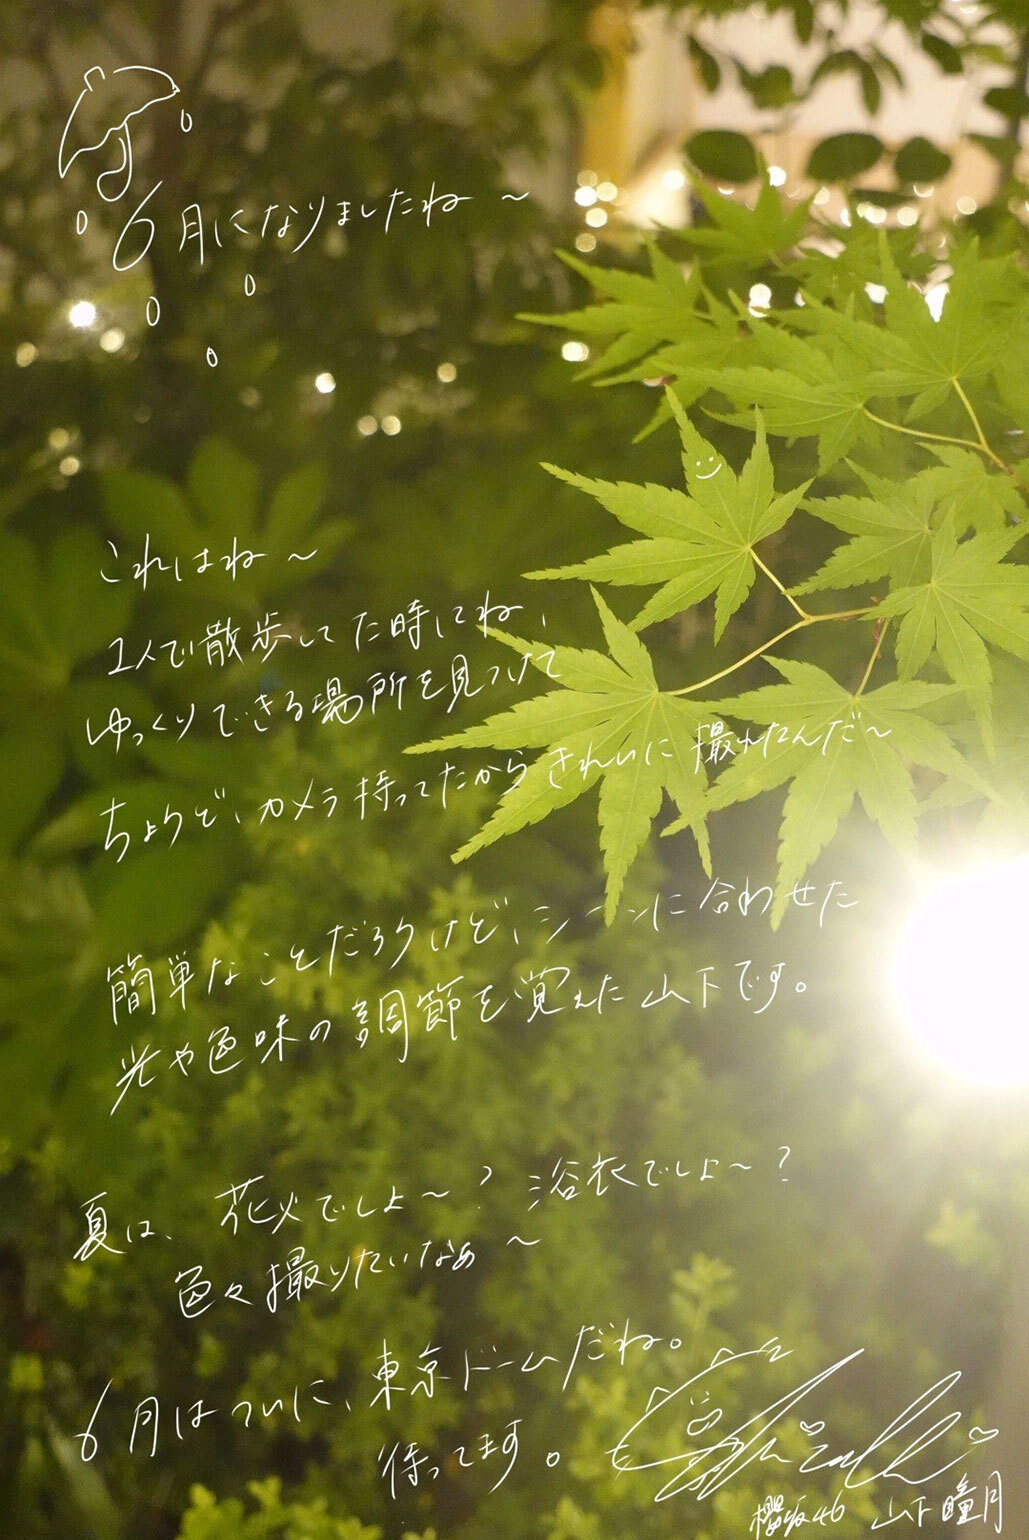 6月になりましたね〜
これはね〜
1人で散歩してた時にね、
ゆっくりできる場所を見つけて
ちょうど、カメラ持ってたからきれいに撮れたんだ〜
簡単なことだろうけど、シーンに合わせた
光や色味の調節を覚えた山下です。
夏は、花火でしょ〜?浴衣でしょ〜?
色々撮りたいなぁ〜
6月はついに、東京ドームだね。
待ってます。
櫻坂46 山下瞳月